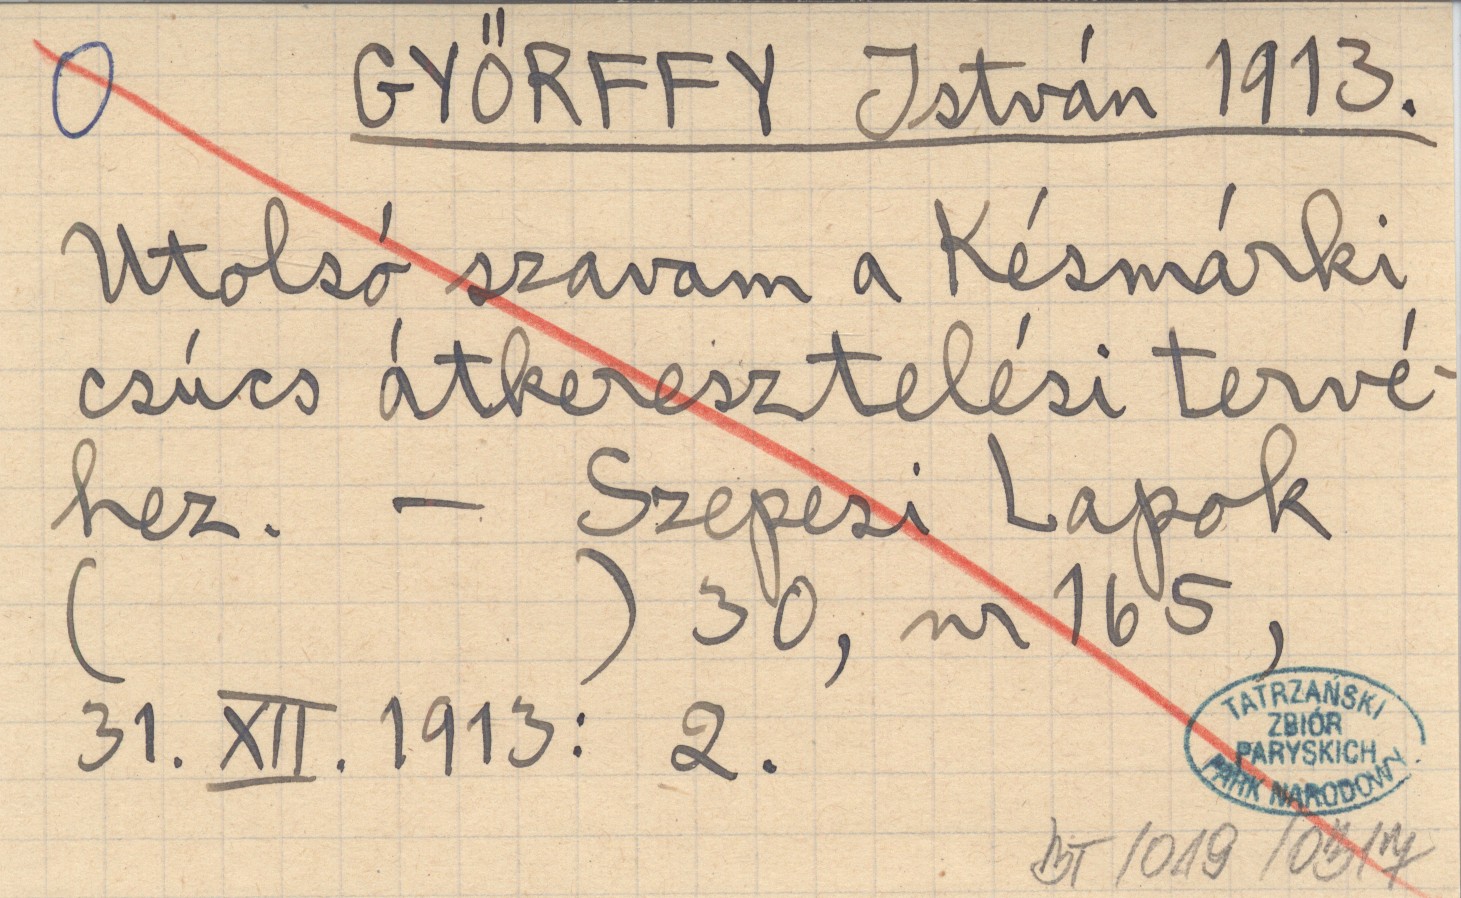 0 GYŐRFFY István 1913.
Utolsó szavam a Késmárki
csúcs átkeresztelési tervé-
hez. — Szepesi Lapok
( ) 30, nr 165,
31. XII. 1913: 2.
TATRZAŃSKI
ZBIÓR
PARYSKICH
PARK NARODOWY
BT/019